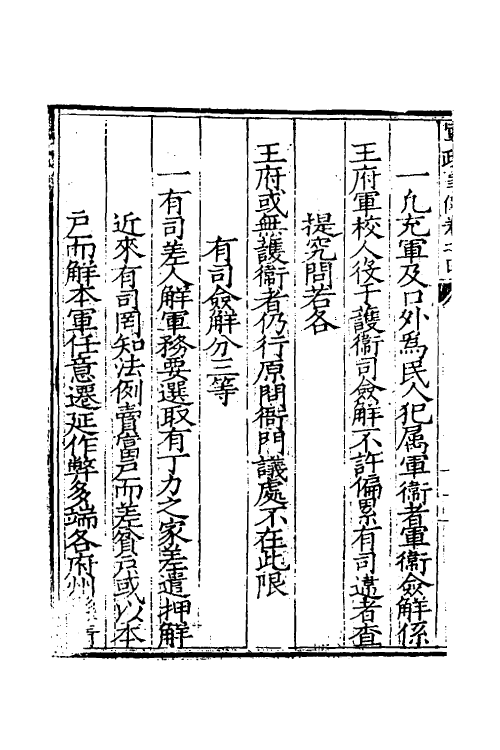 一凡充軍及口外爲民人犯属軍衞者軍衞僉解係
王府軍校人役于護衞司僉解不許偏累有司違者查
提究問若各
王府或無護衞者仍行原問衙門議處不在此限
有司僉解分三等
一有司差人解軍務要選取有丁力之家差遣押解
近來有司罔知法例賣富戸而差貧戸或以本
戸而解本軍任意遷延作弊多端各府州